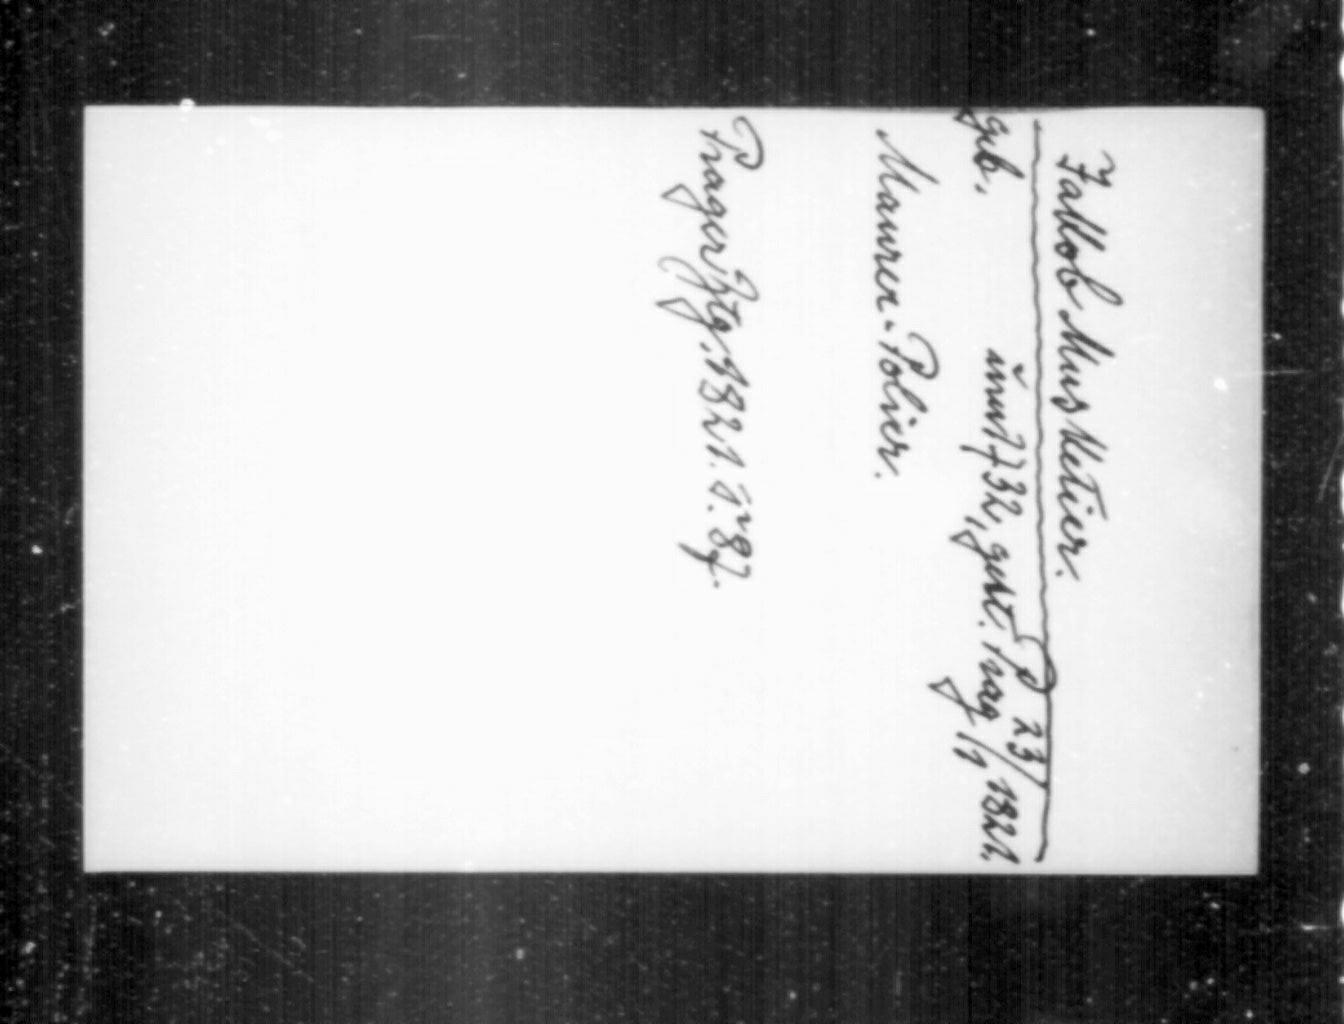 Jakob Musketier.
geb. um 1732, gest. Prag 23/1 1821.
Maurer-Polier.
Prager Ztg. 1821. S. 87.